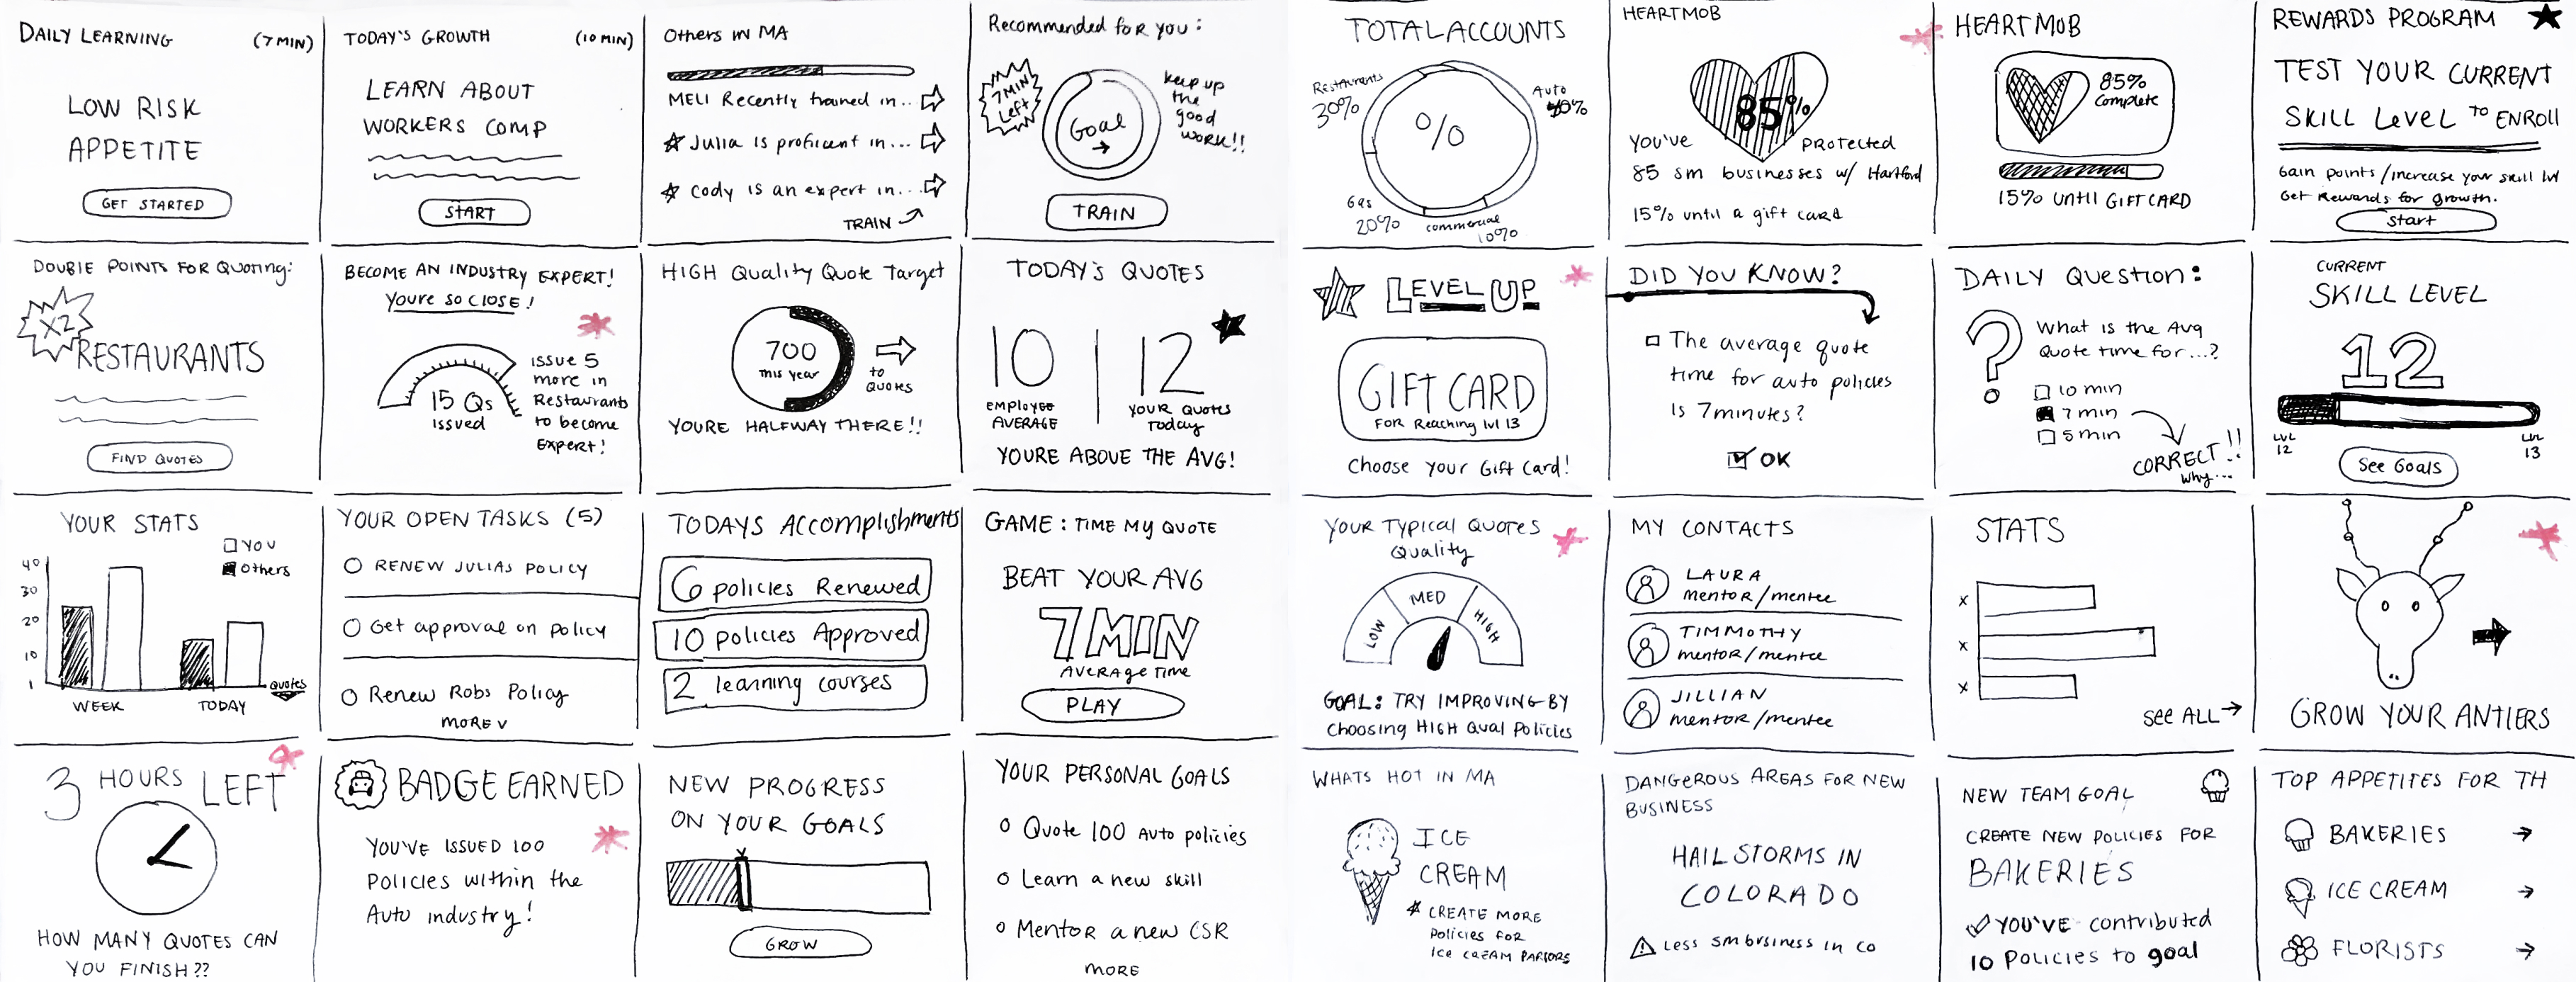 DAILY LEARNING (7 MIN)
LOW RISK
APPETITE
GET STARTED
TODAY'S GROWTH (10 MIN)
LEARN ABOUT
WORKERS COMP
START
Others in MA
MELI Recently trained in...
Julia is proficant in...
Cody is an expert in...
TRAIN
Recommended for you:
7 MIN
Left
Goal
keep up
the
good
work!!
TRAIN
TOTAL ACCOUNTS
Restaurants
30%
Auto
%
Gas
20%
commercial
10%
HEARTMOB
85%
YOU'VE PROTECTED
85 sm businesses w/ Hartford
15% until a gift card
HEARTMOB
85%
complete
15% UNTIL GIFT CARD
REWARDS PROGRAM
TEST YOUR CURRENT
SKILL LEVEL TO ENROLL
Gain points/increase your skill lvl
Get Rewards for growth.
Start
DOUBLE POINTS FOR QUOTING:
X2
RESTAURANTS
FIND QUOTES
BECOME AN INDUSTRY EXPERT!
YOURE SO CLOSE!
15 Qs
issued
ISSUE 5
more in
Restaurants
to become
Expert!
HIGH Quality Quote Target
700
this year
to
Quotes
YOURE HALFWAY THERE!!
TODAY'S QUOTES
10
EMPLOYEE
AVERAGE
12
YOUR QUOTES
Today
YOURE ABOVE THE AVG!
LEVEL UP
GIFT CARD
FOR Reaching lvl 13
Choose your Gift Card!
DID YOU KNOW?
The average quote
time for auto policies
is 7 minutes?
OK
DAILY Question:
?
What is the Avg
Quote time for...?
10 min
7 min
5 min
CORRECT!!
why...
CURRENT
SKILL LEVEL
12
LVL
12
LVL
13
See Goals
YOUR STATS
YOU
Others
40
30
20
10
1
Quotes
WEEK
TODAY
YOUR OPEN TASKS (5)
RENEW JULIAS POLICY
Get approval on policy
Renew Robs Policy
MORE V
TODAYS Accomplishments
6 policies Renewed
10 policies Approved
2 learning courses
GAME: TIME MY QUOTE
BEAT YOUR AVG
7 MIN
AVERAGE TIME
PLAY
YOUR TYPICAL QUOTES
Quality
LOW
MED
HIGH
GOAL: TRY IMPROVING BY
Choosing HIGH Qual Policies
MY CONTACTS
LAURA
mentor/mentee
TIMMOTHY
mentor/mentee
JILLIAN
mentor/mentee
STATS
x
x
x
see ALL
GROW YOUR ANTLERS
3 HOURS LEFT
HOW MANY QUOTES CAN
YOU FINISH??
BADGE EARNED
YOU'VE ISSUED 100
Policies within the
Auto industry!
NEW PROGRESS
ON YOUR GOALS
GROW
YOUR PERSONAL GOALS
Quote 100 Auto policies
Learn a new skill
Mentor a new CSR
MORE
WHATS HOT IN MA
ICE
CREAM
* CREATE MORE
Policies for
Ice CREAM PARLORS
DANGEROUS AREAS FOR NEW
BUSINESS
HAIL STORMS IN
COLORADO
Less sm business in CO
NEW TEAM GOAL
CREATE NEW POLICIES FOR
BAKERIES
YOU'VE contributed
10 Policies to goal
TOP APPETITES FOR TH
BAKERIES
ICE CREAM
FLORISTS